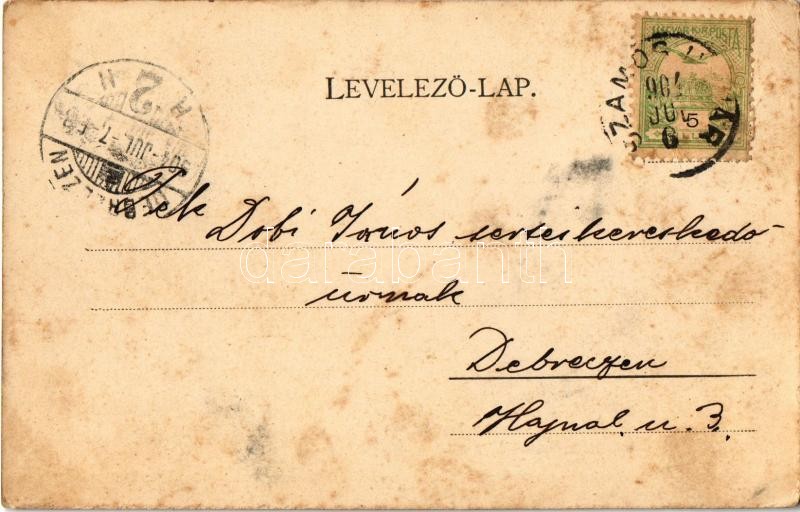 MAGYAR KIR. POSTA
SZAMOSUJVÁR
904
JUL
6
5
LEVELEZŐ-LAP.
DEBRECZEN
904 JUL -7
2
Tek Dobi János sertéskereskedő
úrnak
Debreczen
Hajnal. u. 3.
darabanth